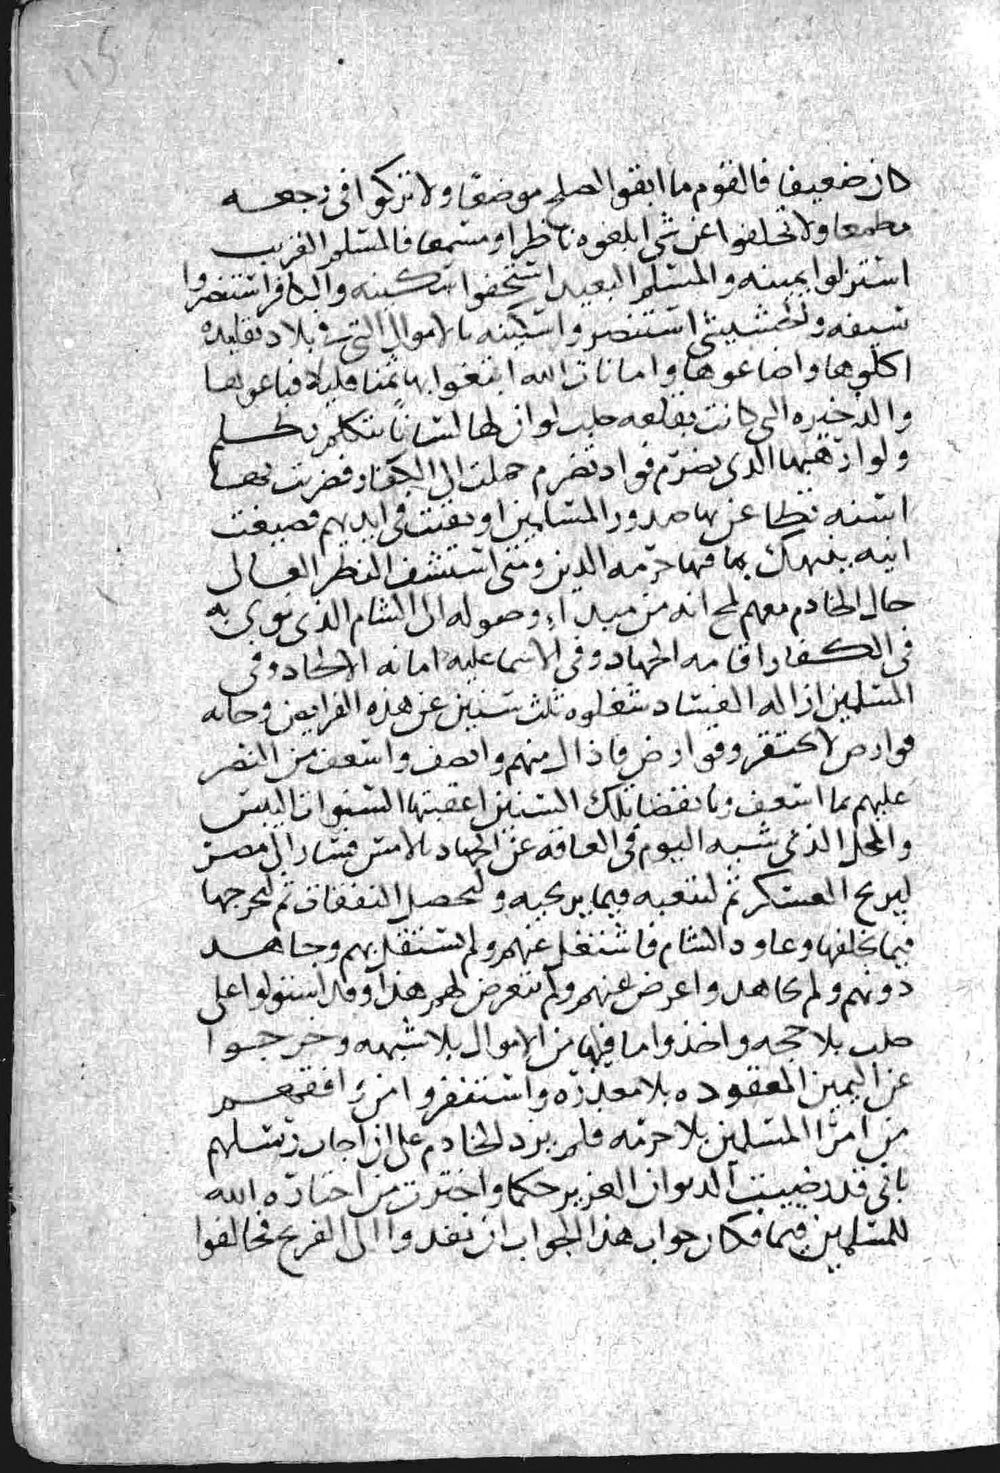 كان ضعيفا فالقوم ما ابقوا الصلح موضعا ولا تركوا في رجعه
مطمعا ولا تخلفوا عن شي ابلغوه ناظرا ومسمعا فالمسلم القريب
استزلوا يمينه والمسلم البعيد استخفوا سكينه والكافر استنصروا
سيفه والحشيشي استنصروا سكينه والاموال التي في بلاد تقليده
اكلوها واضاعوها وامانات الله ابتغوا بها ثمنا قليلا فباعوها
والذخيره التي كانت بقلعه حلب لو ان لها لسانا يتكلم بظلم
ولو ان ذهبها الذي يضرم فواد تضرم حملت الى الكفار فضربت بها
اسنه تطاعن بها صدور المسلمين او بقيت في ايديهم فصيغت
انيه ينتهك بما فيها حرمه الدين ومتى استشف النظر العالي
حال الخادم معهم لمح انه من مبداء وصوله الى الشام الذي نوى به
في الكفار اقامه الجهاد وفي الاسماعيليه اماته الالحاد وفي
المسلمين ازاله الفساد شغلوه ثلث سنين عن هذه الفرايض وحاله
قوارص لا تحتقر وقوارض فاذال منهم وانصف واسعف من النصر
عليهم بما اسعف وبانقضا تلك السنين اعقبتها السنوات اليبس
والمحل الذي شبه اليوم في العاقه عن الجهاد بالامس فسار الى مصر
ليريح العسكر ثم لتتعبه فيما يريحه وليحصل النفقات ثم ليخرجها
فيما يخلفها وعاود الشام فاشتغل عنهم ولم يشتغل بهم وجاهد
دونهم ولم يجاهد واعرض عنهم ولم يتعرض لهم هذا وقد استولوا على
حلب بلا حجه واخذوا ما فيها من الاموال بلا شبهه وخرجوا
عن اليمين المعقوده بلا معذره واستنفروا من رافقهم
من امرا المسلمين بلا حرمه فلم يزد الخادم على ان اجاب رسلهم
باني قد رضيت الديوان العزيز حكما واخترت من اختاره الله
للمسلمين قيما فكان جواب هذا الجواب ان نفذوا الى الفرنج فحالفوا